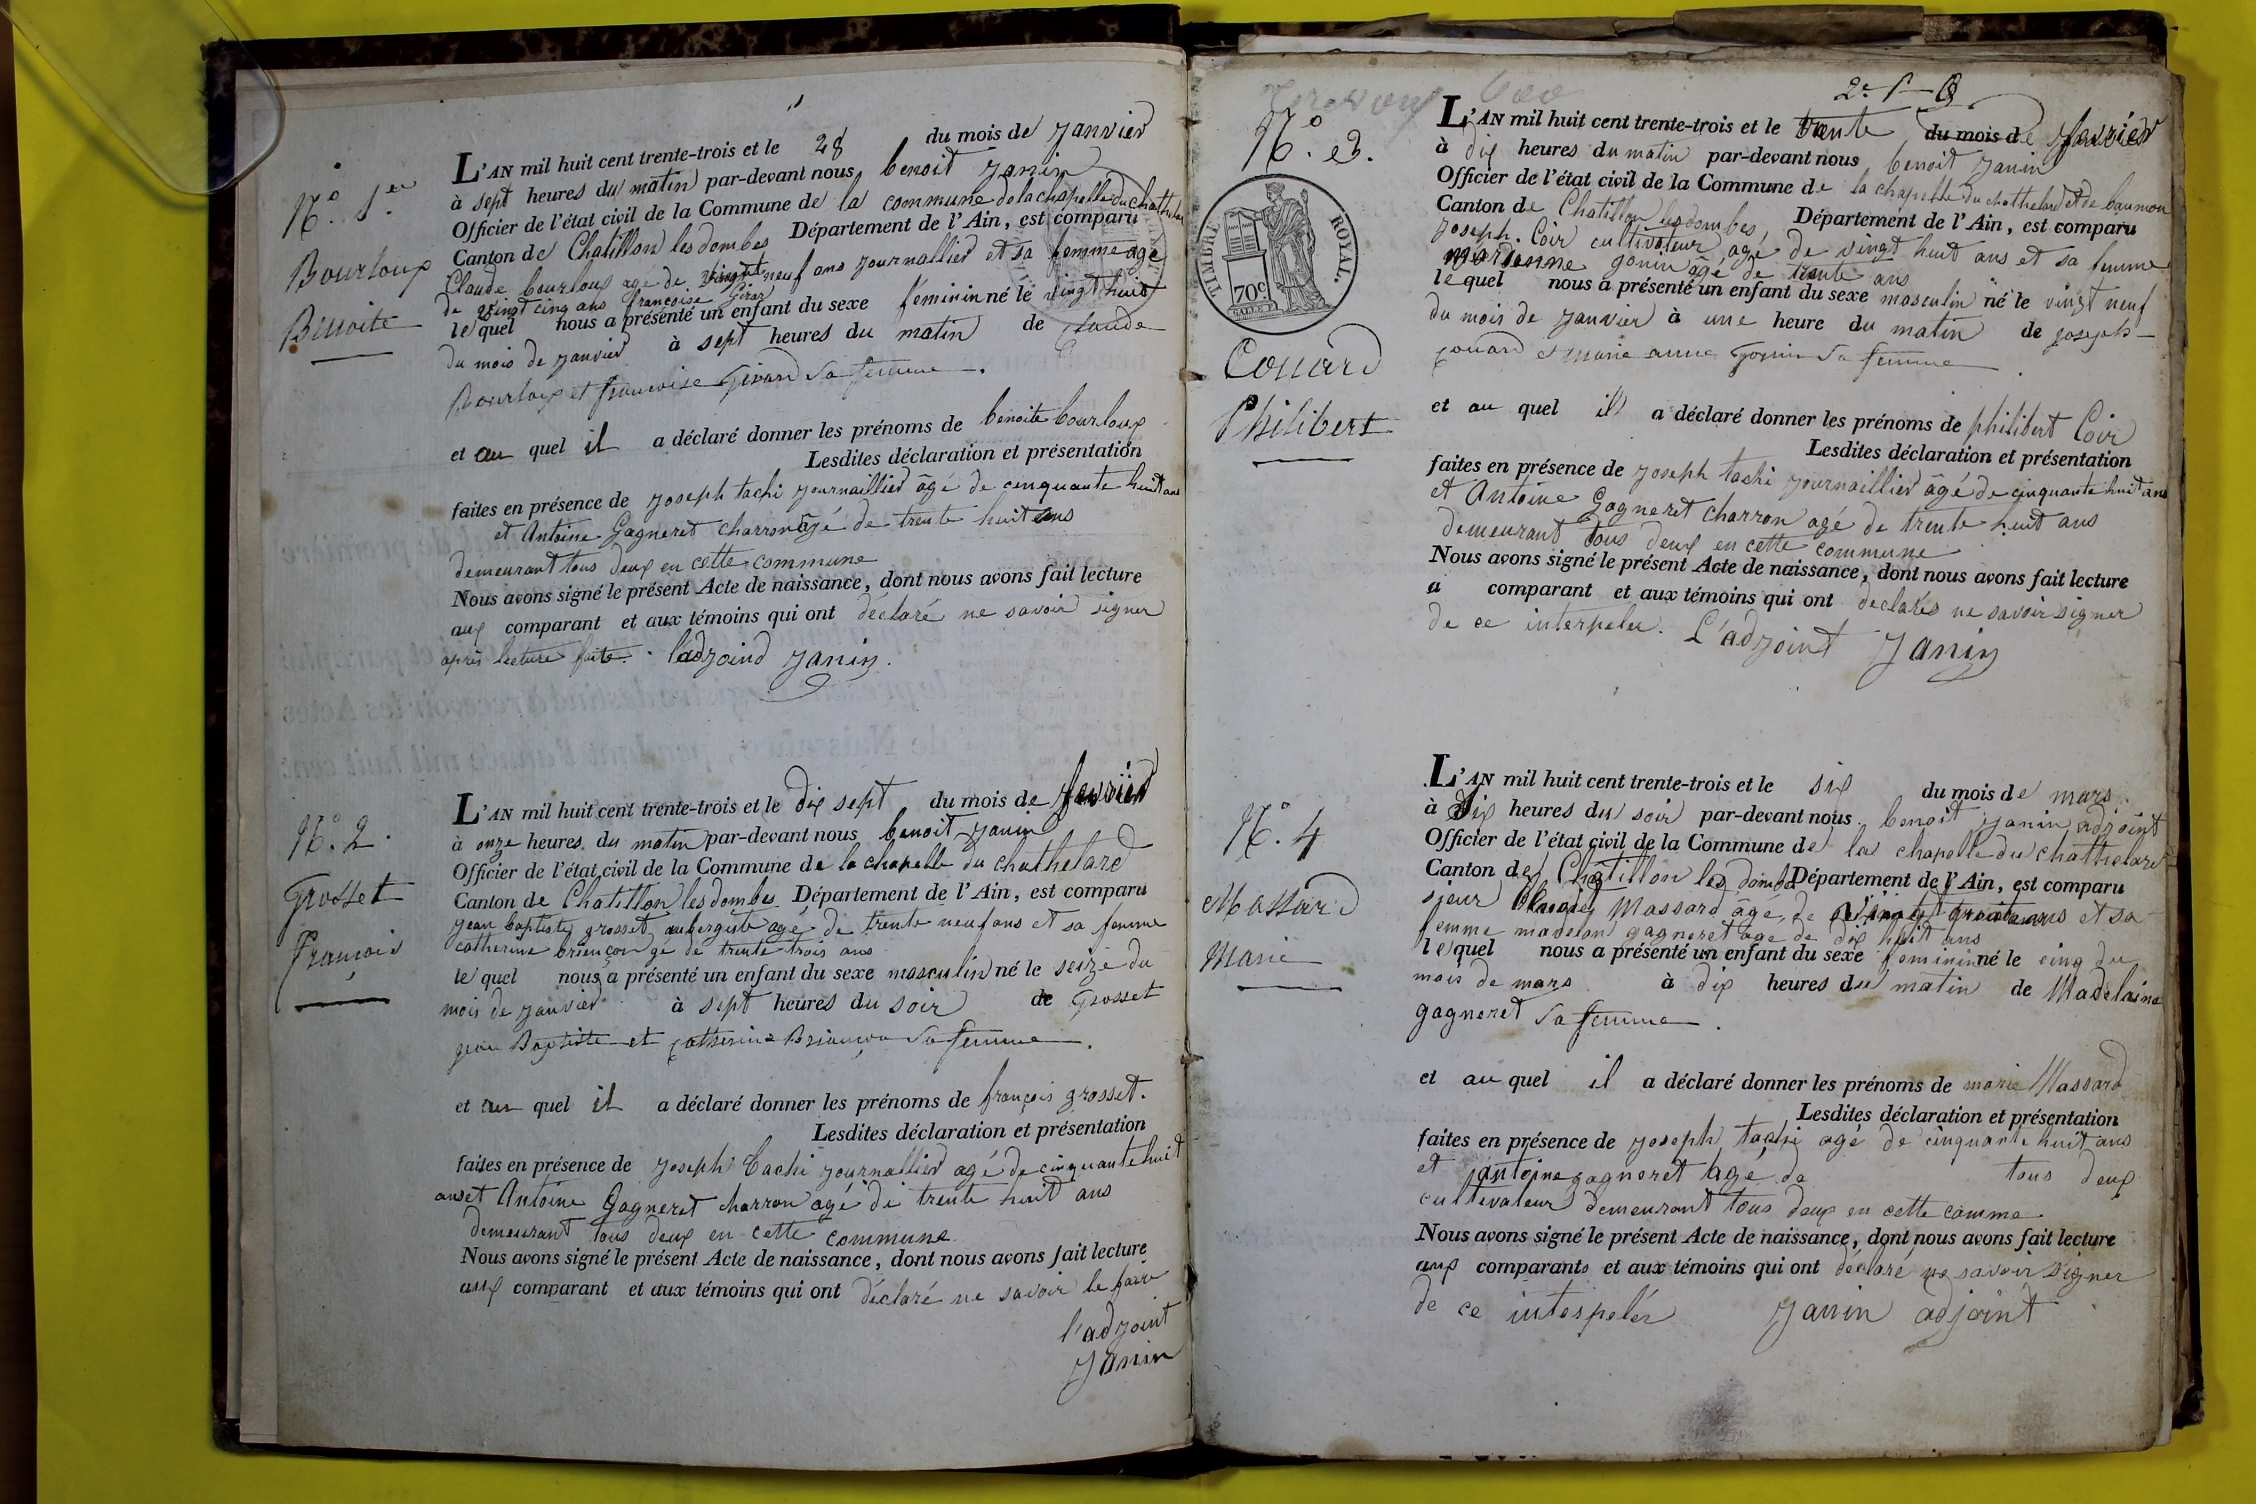 N.° 1.er
Bourloux
Benoite
L'AN mil huit cent trente-trois et le 28 du mois de janvier
à sept heures du matin par-devant nous benoit janin
Officier de l'état civil de la Commune de la commune de la chapelle du chathelar
Canton de Chatillon les dombes Département de l'Ain, est comparu
Claude bourloux agé de vingt neuf ans journallier et sa femme agé
de vingt cinq ans francoise Girar
lequel nous a présenté un enfant du sexe féminin né le vingt huit
du mois de janvier à sept heures du matin de Claude
Bourloux et francoise Girard sa femme.
et au quel il a déclaré donner les prénoms de benoite bourloux
Lesdites déclaration et présentation
faites en présence de joseph tachi journaillier âgé de cinquante huit ans
et Antoine Gagneret charron âgé de trente huit ans
demeurant tous deux en cette commune
Nous avons signé le présent Acte de naissance, dont nous avons fait lecture
aux comparant et aux témoins qui ont déclaré ne savoir signer
après lecture faite. l'adjoind janin.
N.° 2.
Grosset
francois
L'AN mil huit cent trente-trois et le dix sept du mois de
à onze heures du matin par-devant nous benoit janin
Officier de l'état civil de la Commune de la chapelle du chathelard
Canton de Chatillon les dombes Département de l'Ain, est comparu
jean baptiste grosset aubergiste agé de trente neuf ans et sa femme
catherine briençon gé de trente trois ans
le quel nous a présenté un enfant du sexe masculin né le seize du
mois de janvier à sept heures du soir de Grosset
jean Baptiste et catherine Briançon sa femme.
et au quel il a déclaré donner les prénoms de françois grosset.
Lesdites déclaration et présentation
faites en présence de joseph tachi journallier agé de cinquante huit
ans et Antoine Gagneret charron agé de trente huit ans
demeurant tous deux en cette commune
Nous avons signé le présent Acte de naissance, dont nous avons fait lecture
aux comparant et aux témoins qui ont déclaré ne savoir le faire
l'adjoint
janin
N.° 3.
TIMBRE ROYAL.
70c
Couard
Philibert
L'AN mil huit cent trente-trois et le trente du mois de
à dix heures du matin par-devant nous benoit janin
Officier de l'état civil de la Commune de la chapelle du chathelard et de baumon
Canton de Chatillon les dombes, Département de l'Ain, est comparu
joseph Coir cultivateur agé de vingt huit ans et sa femme
gonin âgé de trente ans
lequel nous a présenté un enfant du sexe masculin né le vingt neuf
du mois de janvier à une heure du matin de joseph
couard et marie anne Gonin sa femme.
et au quel il a déclaré donner les prénoms de philibert Coir
Lesdites déclaration et présentation
faites en présence de joseph tachi journaillier âgé de cinquante huit ans
et Antoine Gagneret charron agé de trente huit ans
demeurant tous deux en cette commune
Nous avons signé le présent Acte de naissance, dont nous avons fait lecture
a comparant et aux témoins qui ont declarés ne savoir signer
de ce interpeler. L'adjoint janin
N.° 4
Massard
Marie
L'AN mil huit cent trente-trois et le six du mois de mars
à six heures du soir par-devant nous benoit janin adjoint
Officier de l'état civil de la Commune de la chapelle du chathelard
Canton de Chatillon les dombe Département de l'Ain, est comparu
sieur Massard âgé de ans et sa
femme madelon gagneret agé de dix huit ans
lequel nous a présenté un enfant du sexe feminin né le cinq du
mois de mars à dix heures du matin de Madelaine
gagneret sa femme.
et au quel il a déclaré donner les prénoms de marie Massard
Lesdites déclaration et présentation
faites en présence de joseph tachi agé de cinquante huit ans
et antoine gagneret agé de tous deux
cultivateur demeurant tous deux en cette comme
Nous avons signé le présent Acte de naissance, dont nous avons fait lecture
aux comparants et aux témoins qui ont déclaré ne savoir signer
de ce interpelés janin adjoint